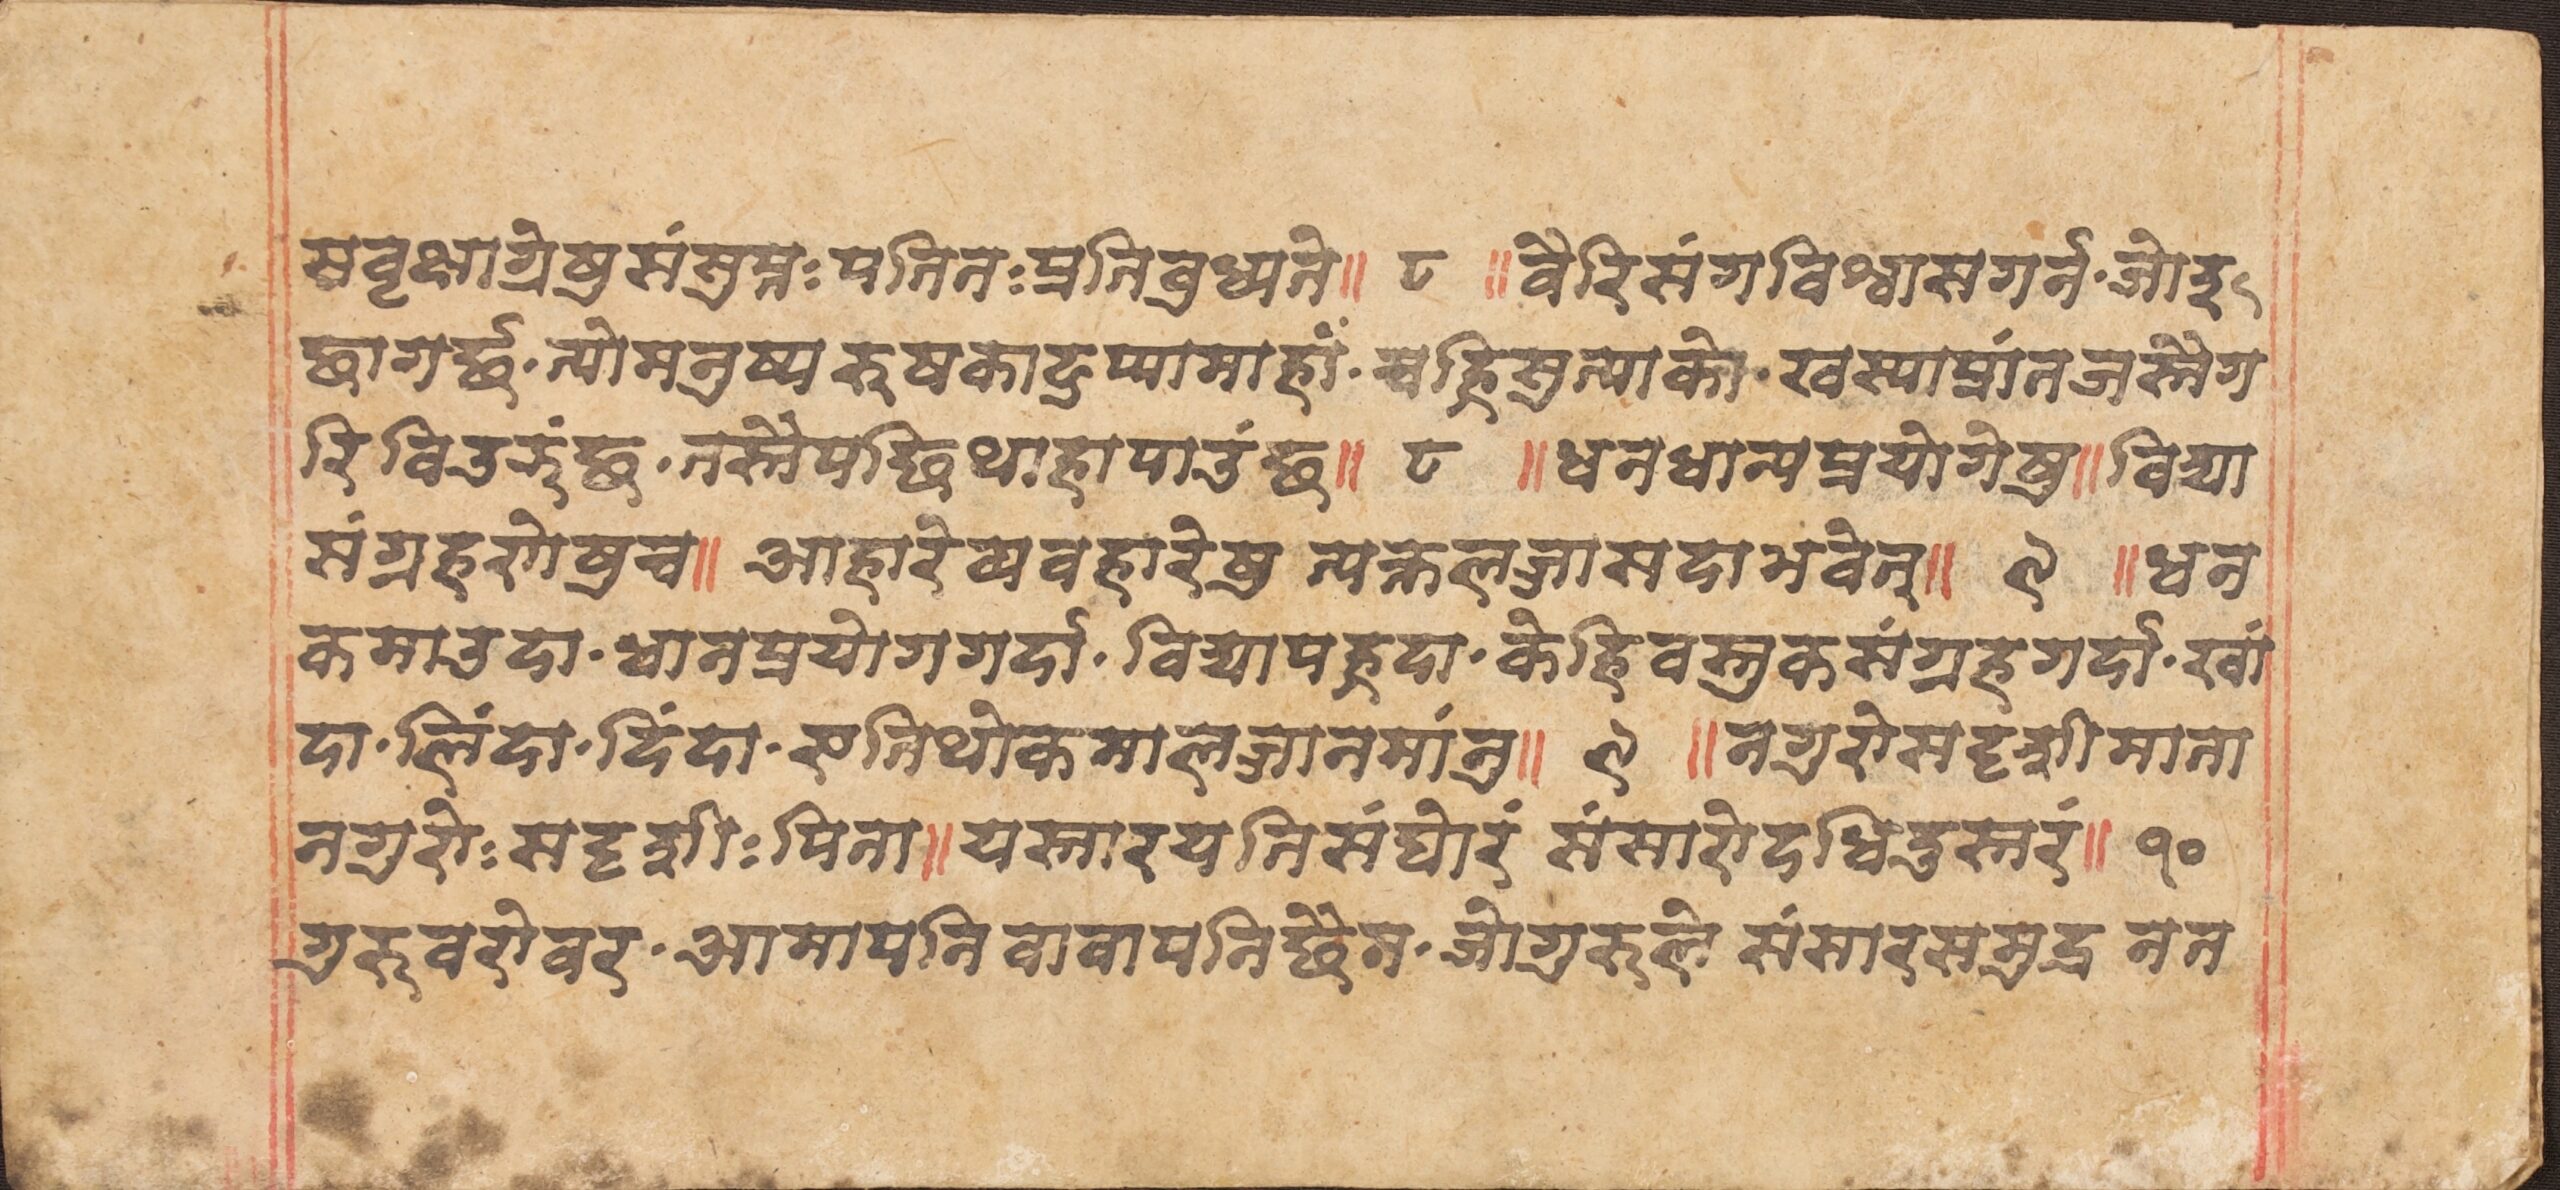 सवृक्षाग्रेषुसंसुप्तः पतितः प्रतिबुध्यते॥ ८ ॥ वैरिसंगविश्वासगर्न· जोइ
छागर्छ· त्योमनुष्यरूषकाटुप्पामाहां· चहिसुत्याको· खस्याप्रांतजस्तैग
रिविउझंछ· तस्तैपछिथाहापाउंछ॥ ८ ॥ धनधान्यप्रयोगेषु॥ विद्या
संग्रहणेषुच॥ आहारेव्यवहारेषु त्यक्तलज्जासदाभवेत्॥ ९ ॥ धन
कमाउदा· धानप्रयोगगर्दा· विद्यापढ्दा· केहिवस्तुकसंग्रहगर्दा· खां
दा· लिंदा· दिंदा· एतिथोकमालज्जानमांनु॥ ९ ॥ नगुरोसदृशीमाता
नगुरोः सदृशीः पिता॥ यस्तारयतिसंघोरं संसारोदधिदुस्तरं॥ १०
गुरूवरोवर· आमापनिवावापनिछैन· जोगुरूले संसारसमुद्र तन